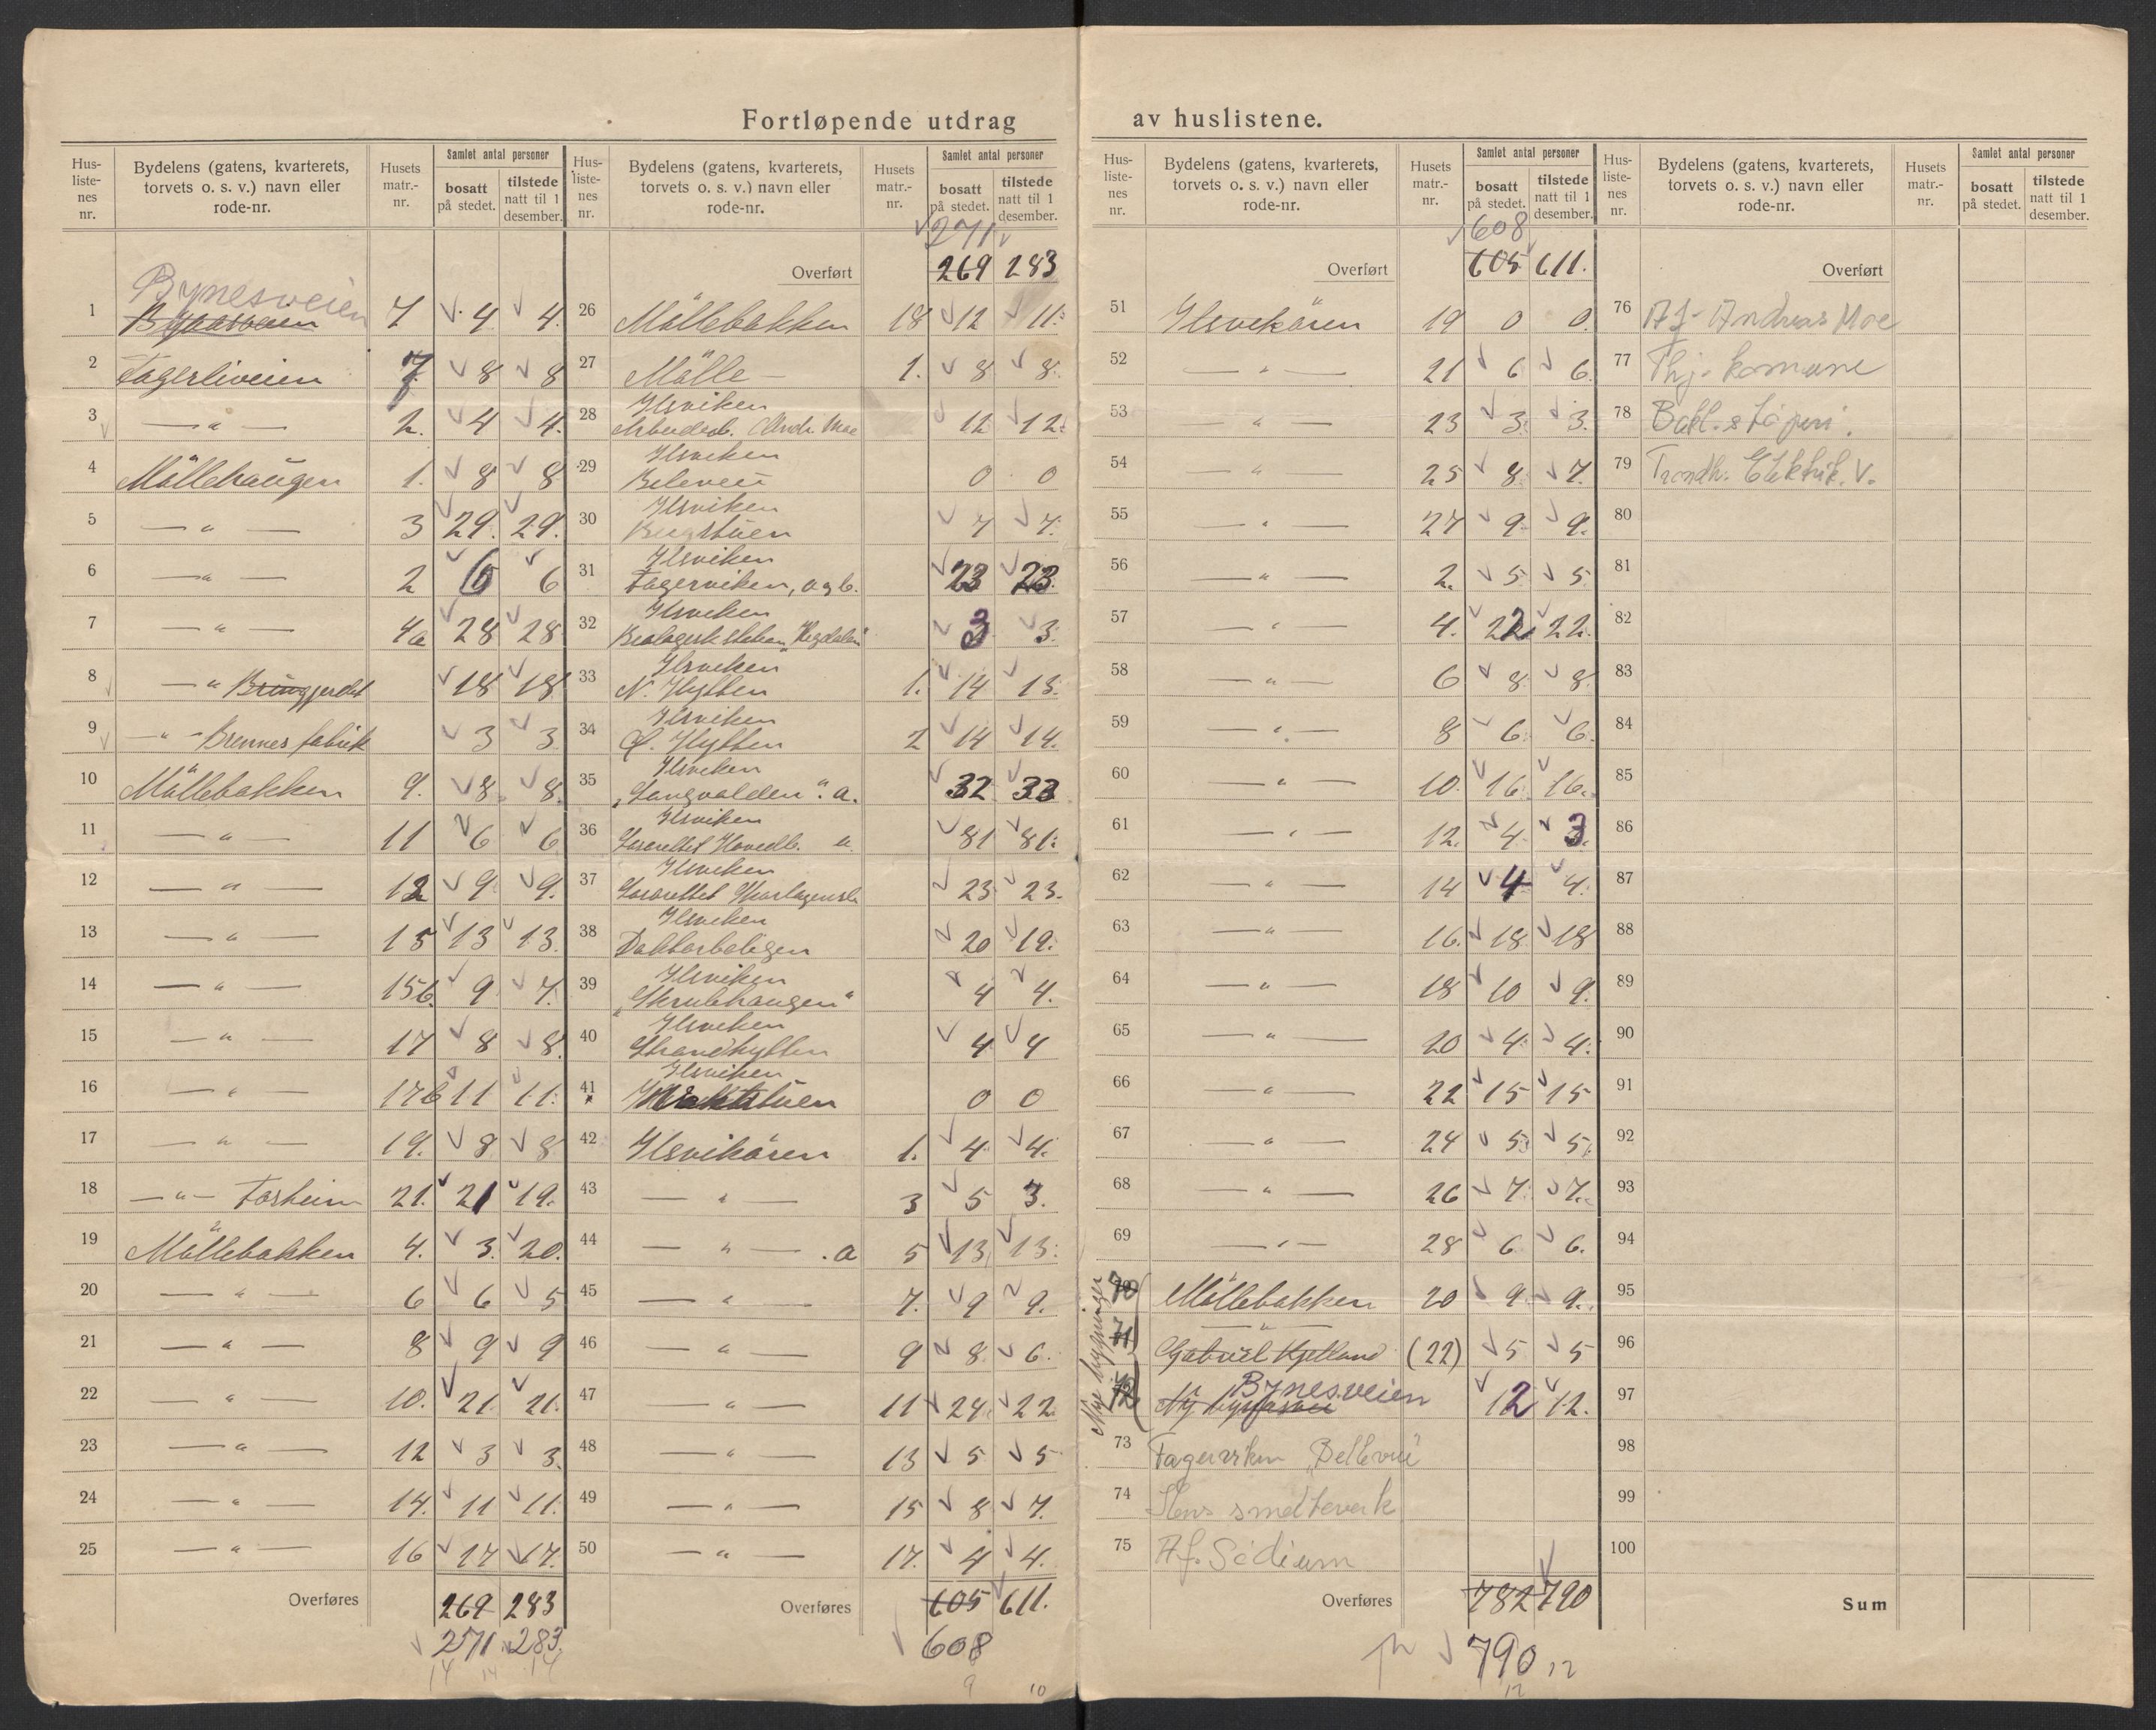 Fortløpende utdrag av huslistene.
Hus-listenes nr. | Bydelens (gatens, kvarterets, torvets o. s. v.) navn eller rode-nr. | Husets matr.-nr. | Samlet antal personer | bosatt på stedet. | tilstede natt til 1 desember.
Bynesveien
1 7 4 4.
2 Fagerliveien 7 8 8
3 — " — 2. 4 4.
4 Möllehaugen 1. 8 8
5 — " — 3 29. 29.
6 — " — 2 6 6
7 — " — 4a 28 28
8 — " 18 18
9 — " — Brennes fabrik 3 3
10 Möllebakken 9. 8 8.
11 — " — 11 6 6
12 — " — 12 9. 9.
13 — " — 15 13 13.
14 — " — 15b. 9 7.
15 — " — 17 8 8.
16 — " — 17b 11 11.
17 — " — 19. 8 8
18 — " — Forheim 21. 21 19.
19 Möllebakken 4. 3. 20.
20 — " — 6 6 5
21 — " — 8 9 9
22 — " — 10. 21. 21.
23 — " — 12 3 3.
24 — " — 14. 11 11.
25 — " — 16 17 17.
Overføres 269 283
271 283.
14 14 14
Hus-listenes nr. | Bydelens (gatens, kvarterets, torvets o. s. v.) navn eller rode-nr. | Husets matr.-nr. | Samlet antal personer | bosatt på stedet. | tilstede natt til 1 desember.
271
Overført 269 283
26 Möllebakken 18 12 11.
27 Mölle — 1. 8 8.
28 Ilsviken
Arbeiderb. Andr. Moe 12 12.
29 Ilsviken
0 0
30 Ilsviken
7 7.
31 Ilsviken
Fagerviken, a g b. 23 23.
32 Ilsviken
3 3.
33 Ilsviken
N. Hytten 1. 14 13.
34 Ilsviken
Ø. Hytten 2 14 14.
35 Ilsviken
"Langvolden". a. 32 33
36 Ilsviken
Lasarettet Hovedb. a. 81 81.
37 Ilsviken
Lasarettet 23 23.
38 Ilsviken
Doktorboligen 20 19.
39 Ilsviken
"Skrubhaugen" 4 4.
40 Ilsviken
Strandhytten 4 4
41 Ilsviken
0 0
42 Ilsvikören 1. 4 4.
43 — " — 3 5 3.
44 — " — . a 5 13 13.
45 — " — 7. 9 9.
46 — " — 9 8 6.
47 — " — 11 24 22
48 — " — 13 5 5
49 — " — 15 8 7.
50 — " — 17. 4 4.
Overføres 605 611.
608
9 10
Hus-listenes nr. | Bydelens (gatens, kvarterets, torvets o. s. v.) navn eller rode-nr. | Husets matr.-nr. | Samlet antal personer | bosatt på stedet. | tilstede natt til 1 desember.
608
Overført 605 611.
51 Ilsvikören 19 0 0.
52 — " — 21 6 6.
53 — " — 23 3. 3.
54 — " — 25 8. 7.
55 — " — 27 9. 9.
56 — " — 2. 5 5
57 — " — 4. 22 22.
58 — " — 6 8. 8.
59 — " — 8 6. 6.
60 — " — 10. 16 16.
61 — " — 12. 4. 3.
62 — " — 14 4 4.
63 — " — 16. 18 18
64 — " — 18 10 9.
65 — " — 20 4. 4.
66 — " — 22 15 15
67 — " — 24 5. 5.
68 — " — 26 7. 7.
69 — " — 28 6. 6.
Nye bygninger
70 Möllebakken 20 9. 9.
— " —
71 Gabriel Kjelland (22) 5 5
72 Bynesveien 12 12.
73 Fagerviken "Bellevue"
74 Ilens smelteverk
75 A/S. Sodium
Overføres 782 790
790 12
12
Hus-listenes nr. | Bydelens (gatens, kvarterets, torvets o. s. v.) navn eller rode-nr. | Husets matr.-nr. | Samlet antal personer | bosatt på stedet. | tilstede natt til 1 desember.
Overført
76 A/S Andreas Moe
77 Thj. komune
78 Bakl. støperi.
79 Trondh. Elektrik. V.
80
81
82
83
84
85
86
87
88
89
90
91
92
93
94
95
96
97
98
99
100
Sum